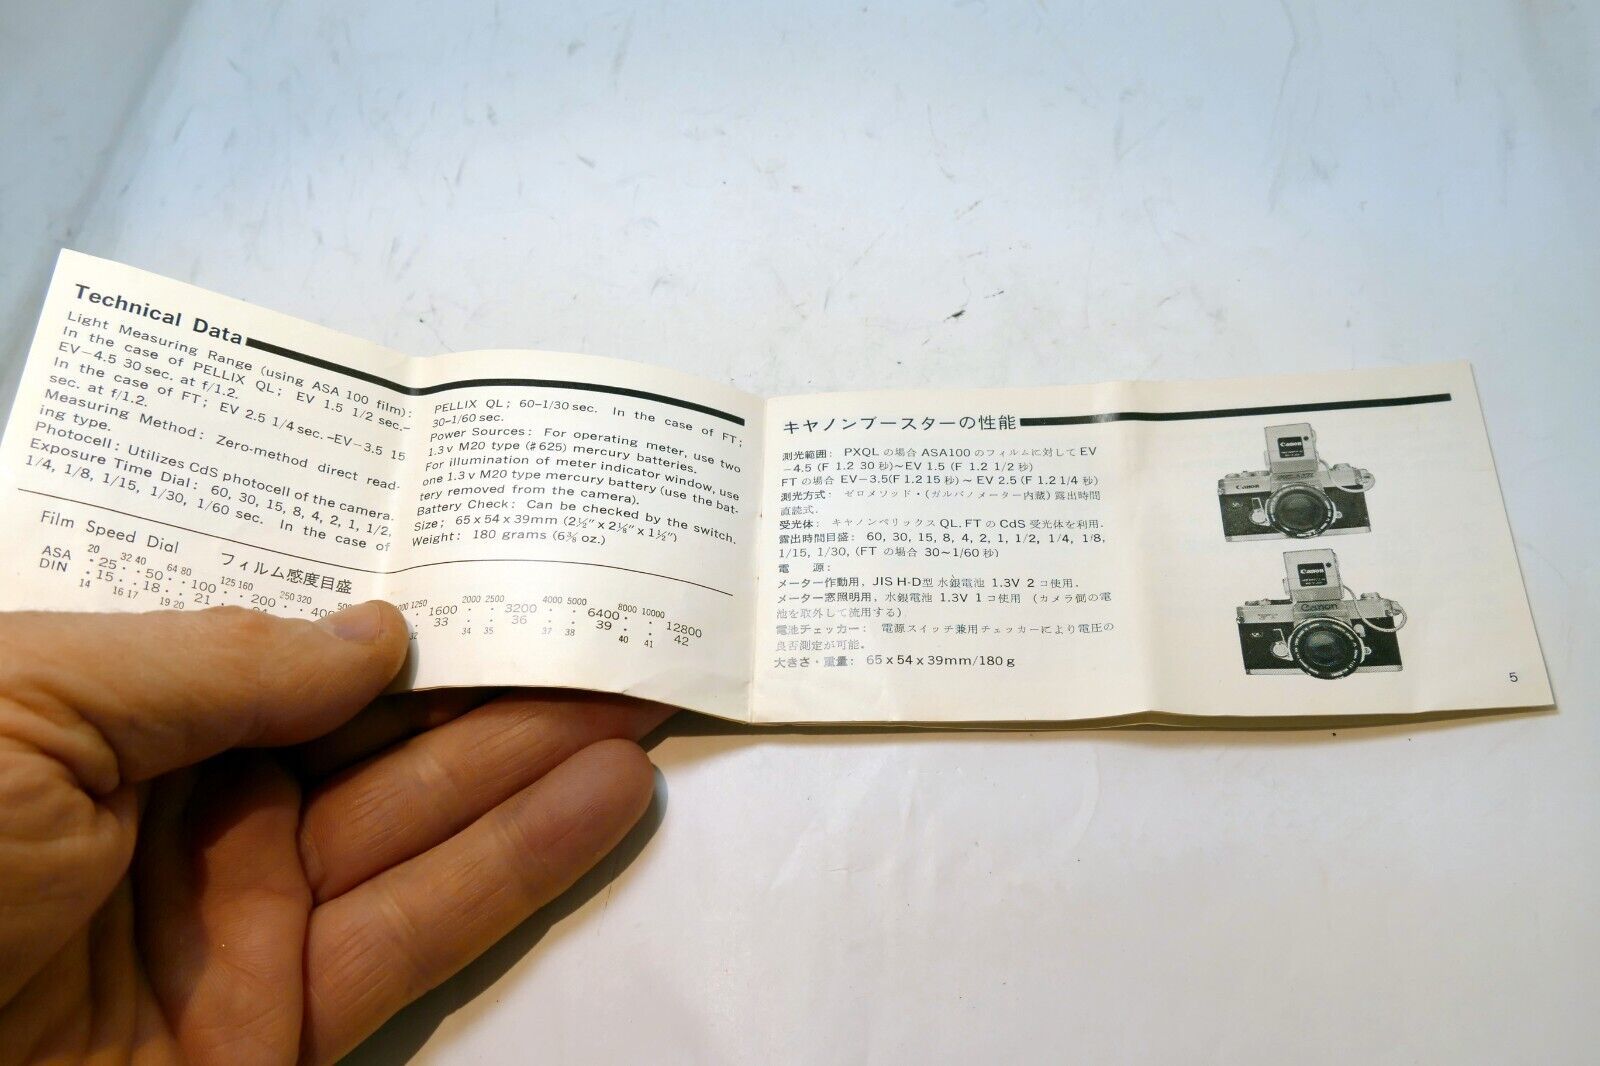 Technical Data
Light Measuring Range (using ASA 100 film):
In the case of PELLIX QL; EV 1.5 1/2 sec.–
EV−4.5 30 sec. at f/1.2.
In the case of FT; EV 2.5 1/4 sec.–EV−3.5 15
sec. at f/1.2.
Measuring Method: Zero-method direct read-
ing type.
Photocell: Utilizes CdS photocell of the camera.
Exposure Time Dial: 60, 30, 15, 8, 4, 2, 1, 1/2,
1/4, 1/8, 1/15, 1/30, 1/60 sec. In the case of
PELLIX QL; 60–1/30 sec. In the case of FT;
30–1/60 sec.
Power Sources: For operating meter, use two
1.3 v M20 type (#625) mercury batteries.
For illumination of meter indicator window, use
one 1.3 v M20 type mercury battery (use the bat-
tery removed from the camera).
Battery Check: Can be checked by the switch.
Size; 65 x 54 x 39mm (2½" x 2⅛" x 1½")
Weight: 180 grams (6⅜ oz.)
Film Speed Dial フィルム感度目盛
20 32 40 64 80 125 160 250 320 2000 2500 4000 5000 8000 10000
ASA ・25・・50・・100・・200・・400 1600・・3200・・6400・・12800
DIN ・15・・18・・21 33 36 39 42
14 16 17 19 20 32 34 35 37 38 40 41
キヤノンブースターの性能
測光範囲: PXQL の場合 ASA100 のフィルムに対して EV
−4.5 (F 1.2 30 秒)〜EV 1.5 (F 1.2 1/2 秒)
FT の場合 EV−3.5(F 1.2 15 秒)〜 EV 2.5 (F 1.2 1/4 秒)
測光方式: ゼロメソッド・(ガルバノメーター内蔵) 露出時間
直読式.
受光体: キヤノンペリックス QL. FT の CdS 受光体を利用.
露出時間目盛: 60, 30, 15, 8, 4, 2, 1, 1/2, 1/4, 1/8,
1/15, 1/30, (FT の場合 30〜1/60 秒)
電 源:
メーター作動用, JIS H-D型 水銀電池 1.3V 2 コ使用.
メーター窓照明用, 水銀電池 1.3V 1 コ使用 (カメラ側の電
池を取外して流用する)
電池チェッカー: 電源スイッチ兼用チェッカーにより電圧の
良否測定が可能.
大きさ・重量: 65 x 54 x 39mm/180 g
Canon
Canon
Canon
Canon
5